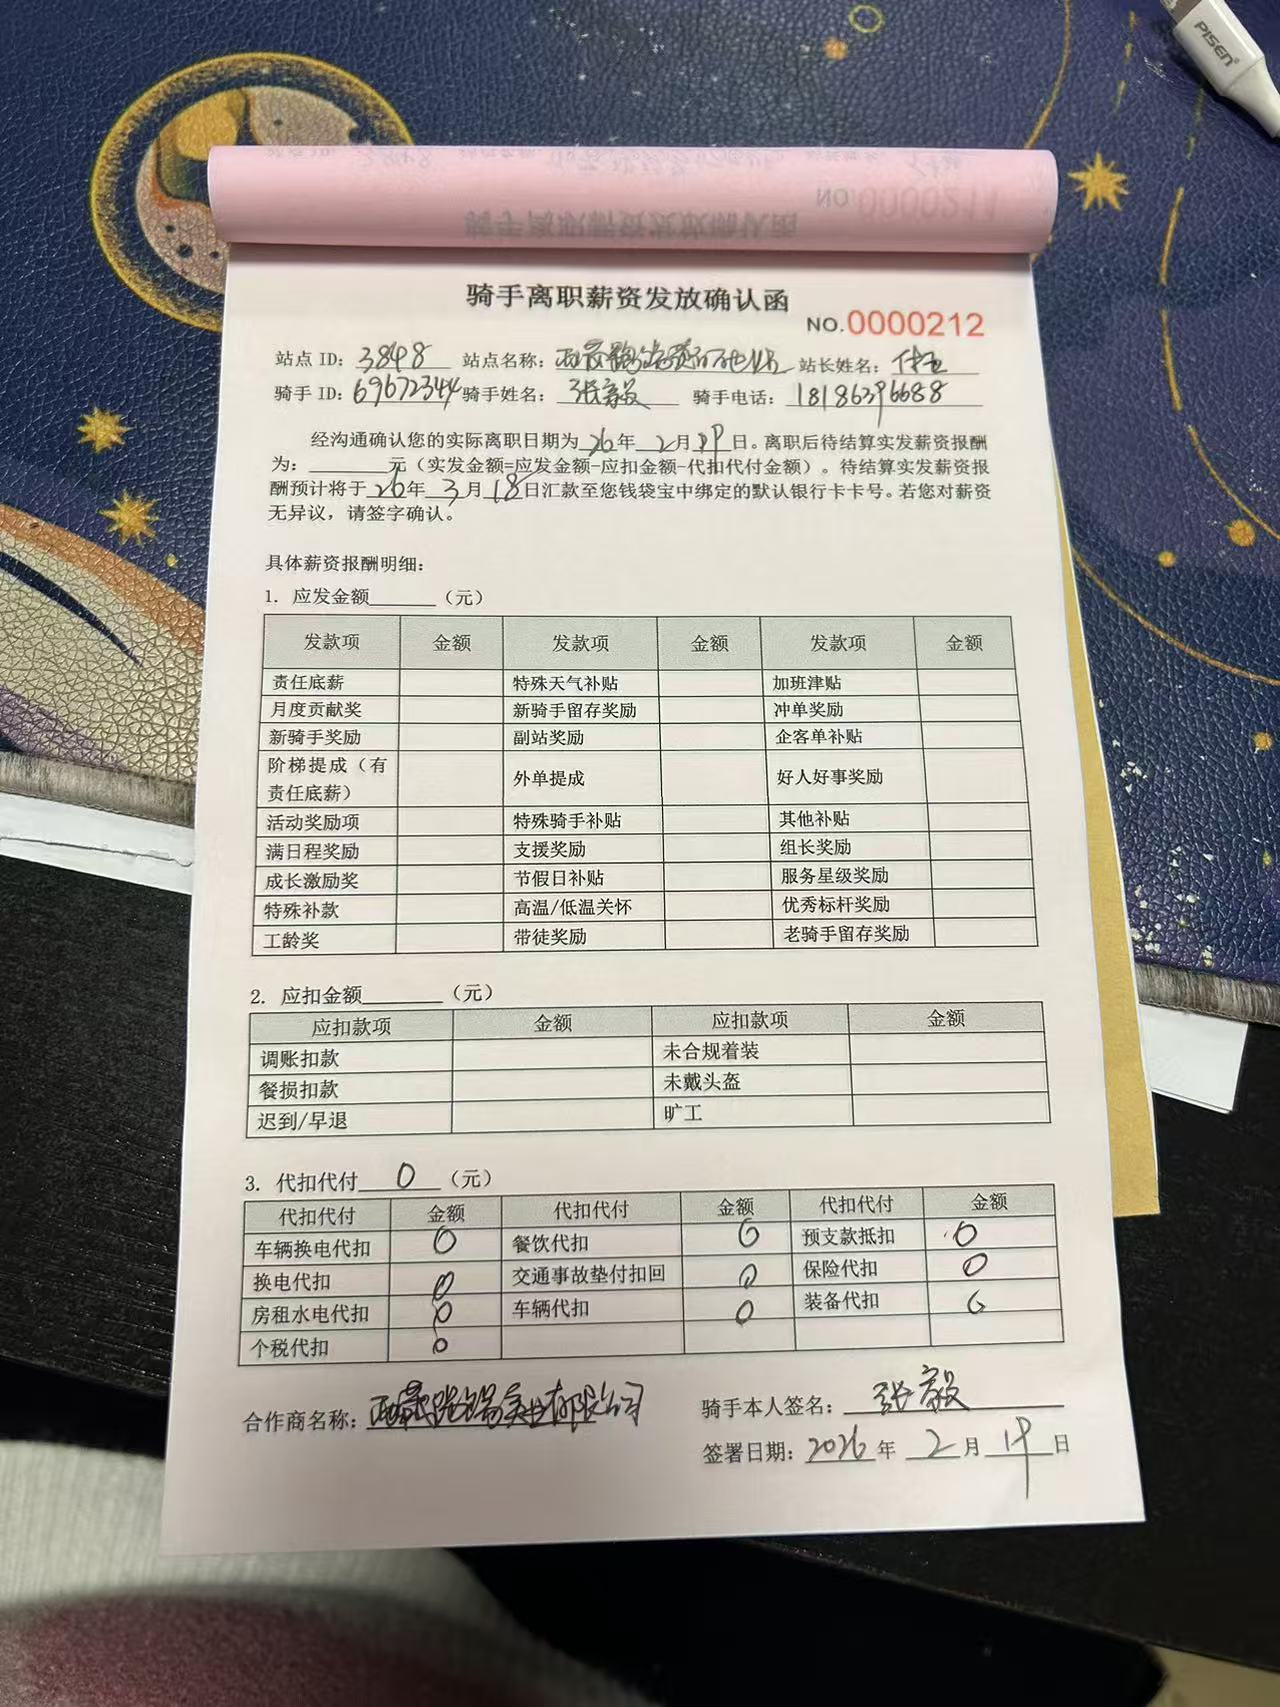 PISEN
NO.0000211
骑手离职薪资发放确认函
骑手离职薪资发放确认函
NO.0000212
站点 ID: 3848 站点名称: 站长姓名:
骑手 ID: 69672344 骑手姓名: 张毅 骑手电话: 18186396688
经沟通确认您的实际离职日期为 26 年 2 月 19 日。离职后待结算实发薪资报酬
为: 元（实发金额=应发金额-应扣金额-代扣代付金额）。待结算实发薪资报
酬预计将于 26 年 3 月 18 日汇款至您钱袋宝中绑定的默认银行卡卡号。若您对薪资
无异议，请签字确认。
具体薪资报酬明细：
1. 应发金额 （元）
发款项 金额 发款项 金额 发款项 金额
责任底薪 特殊天气补贴 加班津贴
月度贡献奖 新骑手留存奖励 冲单奖励
新骑手奖励 副站奖励 企客单补贴
阶梯提成（有
责任底薪） 外单提成 好人好事奖励
活动奖励项 特殊骑手补贴 其他补贴
满日程奖励 支援奖励 组长奖励
成长激励奖 节假日补贴 服务星级奖励
特殊补款 高温/低温关怀 优秀标杆奖励
工龄奖 带徒奖励 老骑手留存奖励
2. 应扣金额 （元）
应扣款项 金额 应扣款项 金额
调账扣款 未合规着装
餐损扣款 未戴头盔
迟到/早退 旷工
3. 代扣代付 0 （元）
代扣代付 金额 代扣代付 金额 代扣代付 金额
车辆换电代扣 0 餐饮代扣 0 预支款抵扣 0
换电代扣 0 交通事故垫付扣回 0 保险代扣 0
房租水电代扣 0 车辆代扣 0 装备代扣 0
个税代扣 0
合作商名称: 西藏 实业有限公司 骑手本人签名: 张毅
签署日期: 2026 年 2 月 19 日